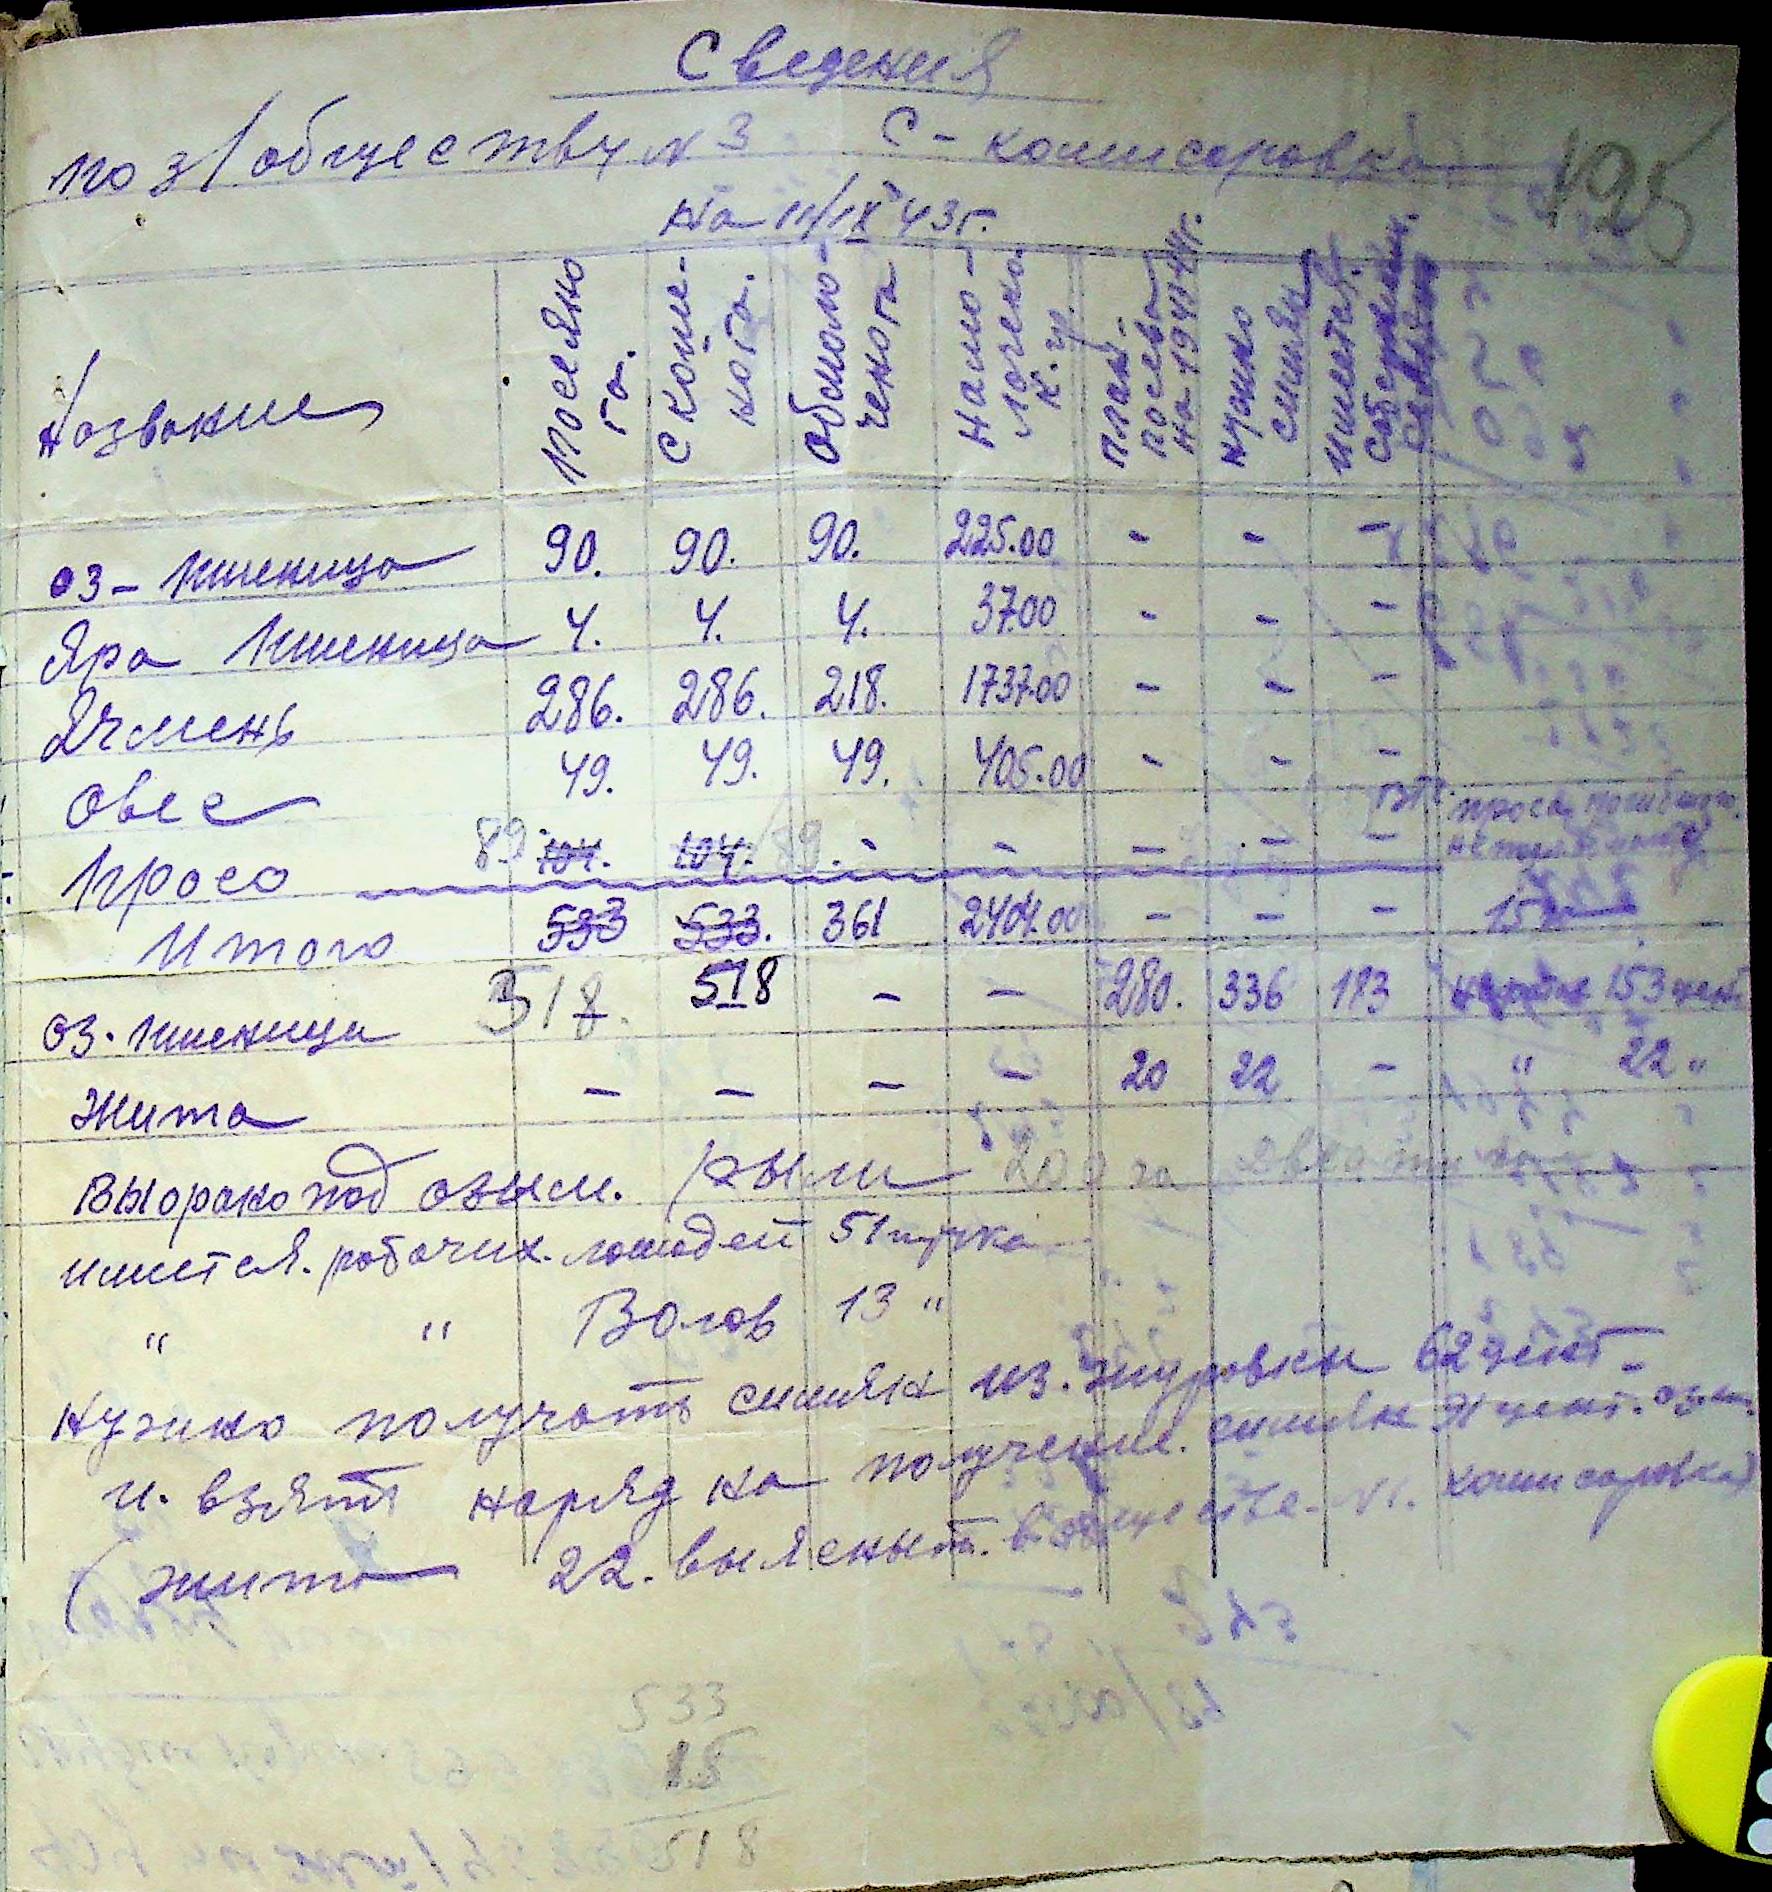 Сведения
по з/обществу N 3 С-комисаровка
195
На 11/IX 43г.
Название
посеяно га.
скоше-ного га.
обмоло-чено га
намо-лочено к.гр.
план. посева на 1944г.
нужно симян
имеется.
оз-пшеница 90. 90. 90. 225.00 - - -
Яра пшеница 4. 4. 4. 37.00 - - -
Ячмень 286. 286. 218. 1737.00 - - -
Овес 49. 49. 49. 405.00 - - -
просо 89 104. 104. 89. - - - - - проса погибшого
Итого 533 533. 361 2404.00 - - - 15 га
518. 518
оз. пшеници - - 280. 336 183 153 цент
Жита - - - - 20 22 - " 22 "
Выорано под озым. рыли 200 га
имеется. рабочих. лошадей 51 штука
" " Волов 13 "
нужно получать симян из. журовки 62 цент-
и. взять наряд на получение. симян 91 цент. оз.пш.
(жита 22. выясныть. в обществе. N1. комисаровка)
533
15
518